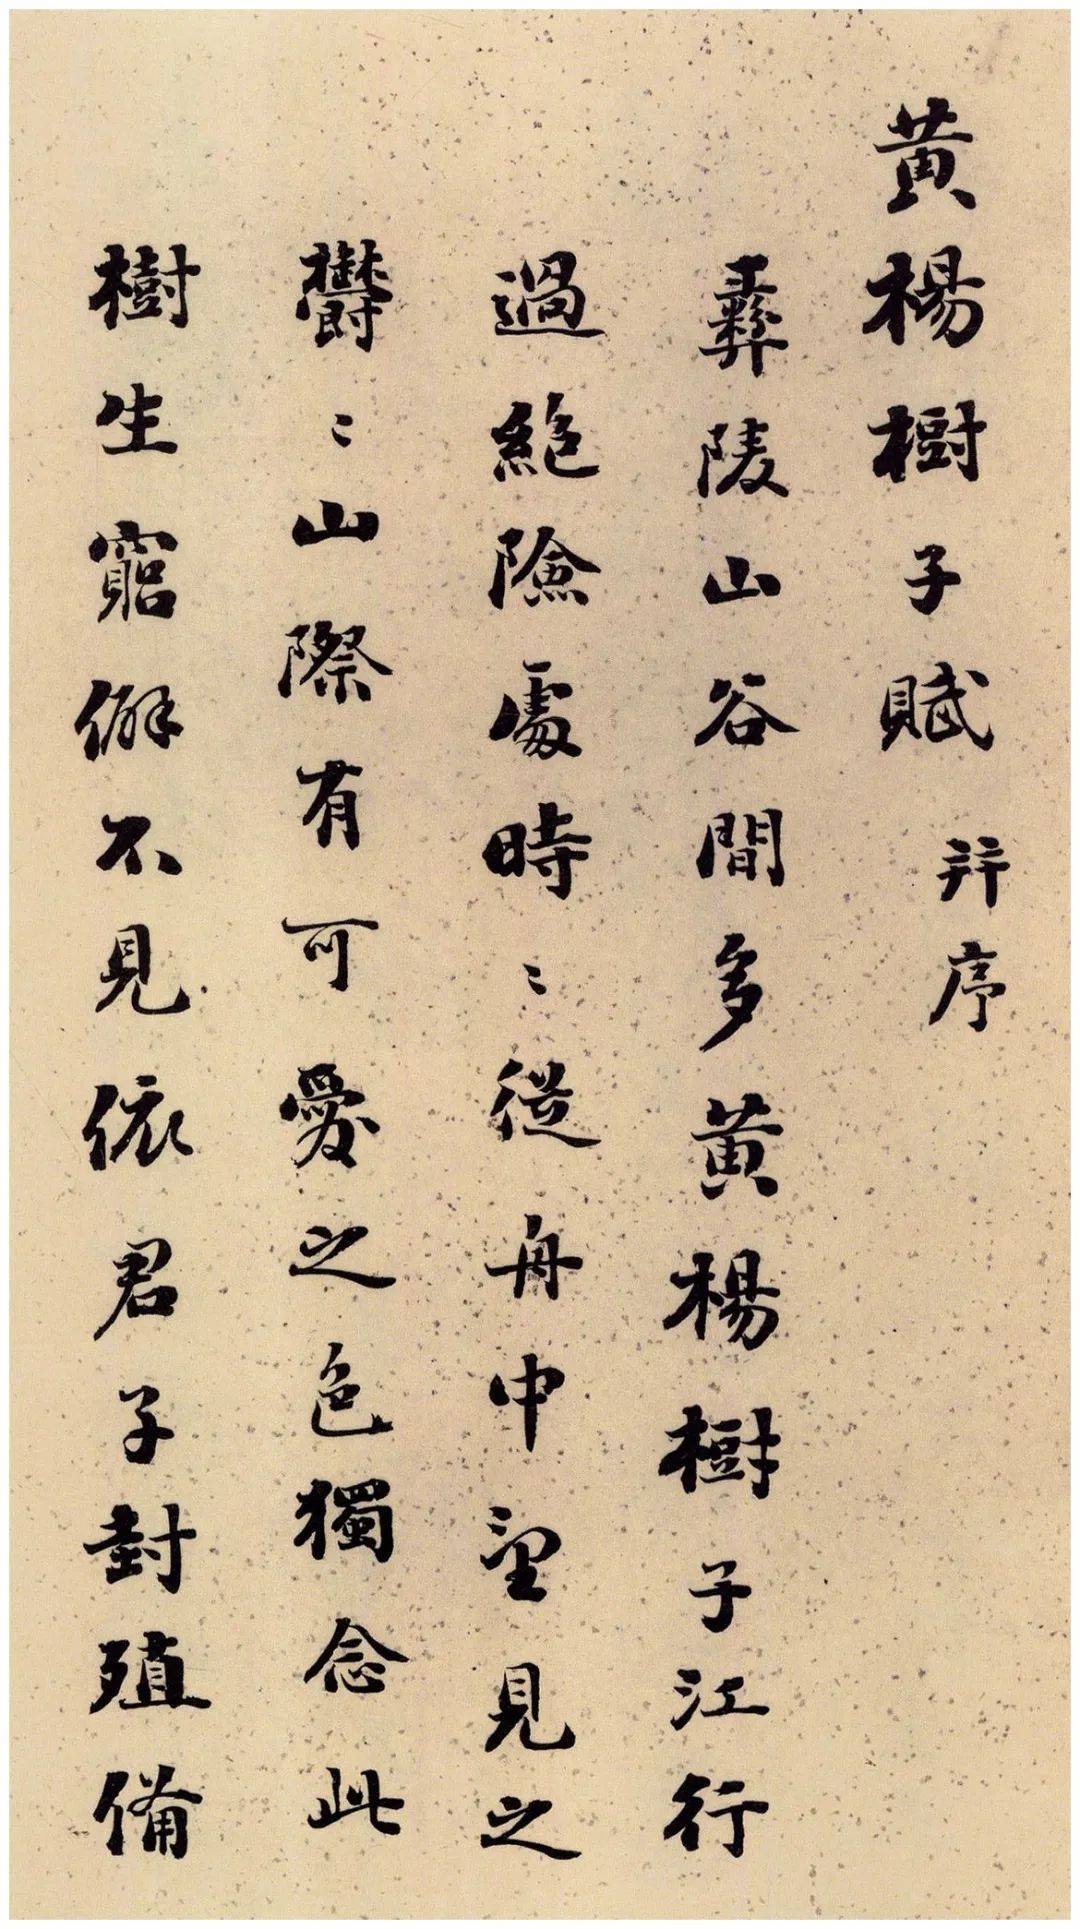 黄楊樹子賦 并序
彝陵山谷間多黄楊樹子江行
過絶險處時〻從舟中望見之
鬱〻山際有可愛之色獨念此
樹生窮僻不見依君子封殖備